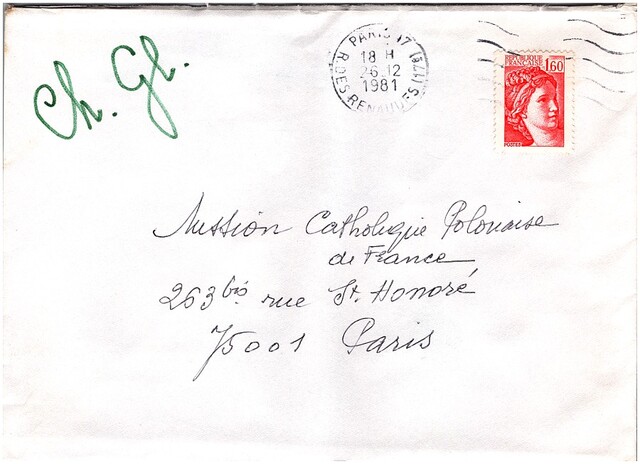 Ch. Gl.
PARIS 17
18 H
26.12
1981
R.DES RENAUDES
REPUBLIQUE
FRANCAISE
1,60
POSTES
Mission Catholique Polonaise
de France
263 bis rue St. Honoré
75001 Paris